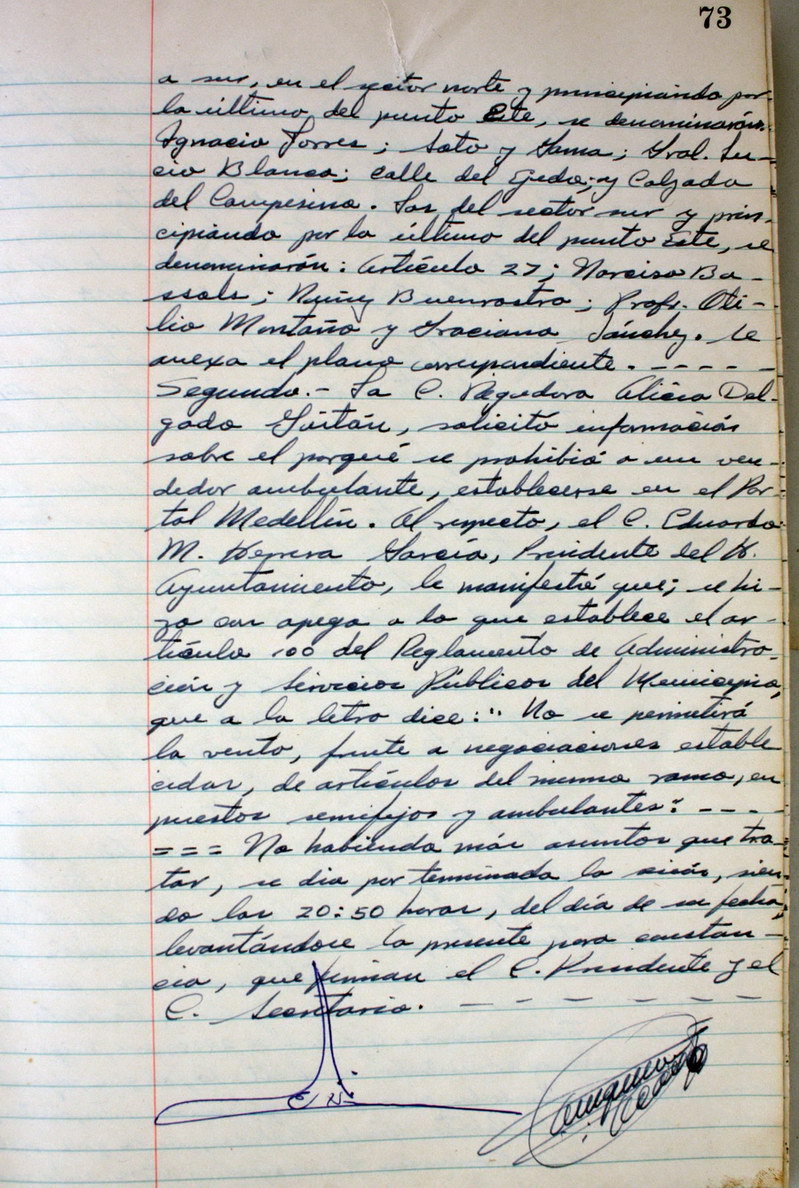 73
a sur, en el sector norte y principiando por
la última del punto Este, se denominarán:
Ignacio Torres; Soto y Gama; Gral. Lu-
cio Blanco; calle del Ejido; y Calzada
del Campesino. Las del sector sur y prin-
cipiando por la última del punto Este, se
denominarán: Artículo 27; Narciso Ba-
ssols; Ruiz Buenrostro; Profr. Oti-
lio Montaño y Graciano Sánchez. Se
anexa el plano correspondiente. - - - - -
Segundo.- La C. Regidora Alicia Del-
gado Gaitán, solicitó información
sobre el porqué se prohibió a un ven-
dedor ambulante, establecerse en el Por-
tal Medellín. Al respecto, el C. Eduardo
M. Herrera García, Presidente del H.
Ayuntamiento, le manifestó que; se hi-
zo con apego a lo que establece el ar-
tículo 100 del Reglamento de Administra-
ción y Servicios Públicos del Municipio,
que a la letra dice: " No se permitirá
la venta, frente a negociaciones estable
cidas, de artículos del mismo ramo, en
puestos semifijos y ambulantes: - - - -
= = = No habiendo más asuntos que tra-
tar, se dio por terminada la sesión, sien-
do las 20:50 horas, del día de su fecha,
levantándose la presente para constan-
cia, que firman el C. Presidente y el
C. Secretario. - - - - - - -